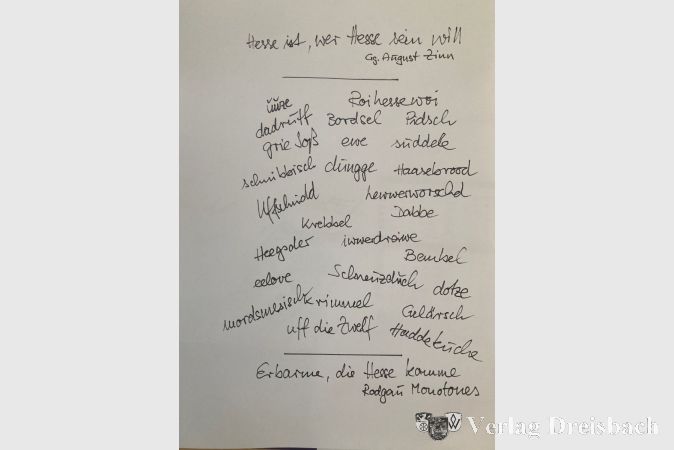 Hesse ist, wer Hesse sein will
Gg. August Zinn
Roihessewoi
dadruff Bordsel Pidsch
grie Soß ewe süddele
schnibbisch dungge Haasebrood
lewwerworschd
Krebbel Dabbe
Heegsder iwwerdreiwe
Bembel
eelove Schneuzduch dotze
mordsmesisch krimmel Gelärsch
uff die Zwelf Haddekuche
Erbarme, die Hesse komme
Rodgau Monotones
Verlag Dreisbach